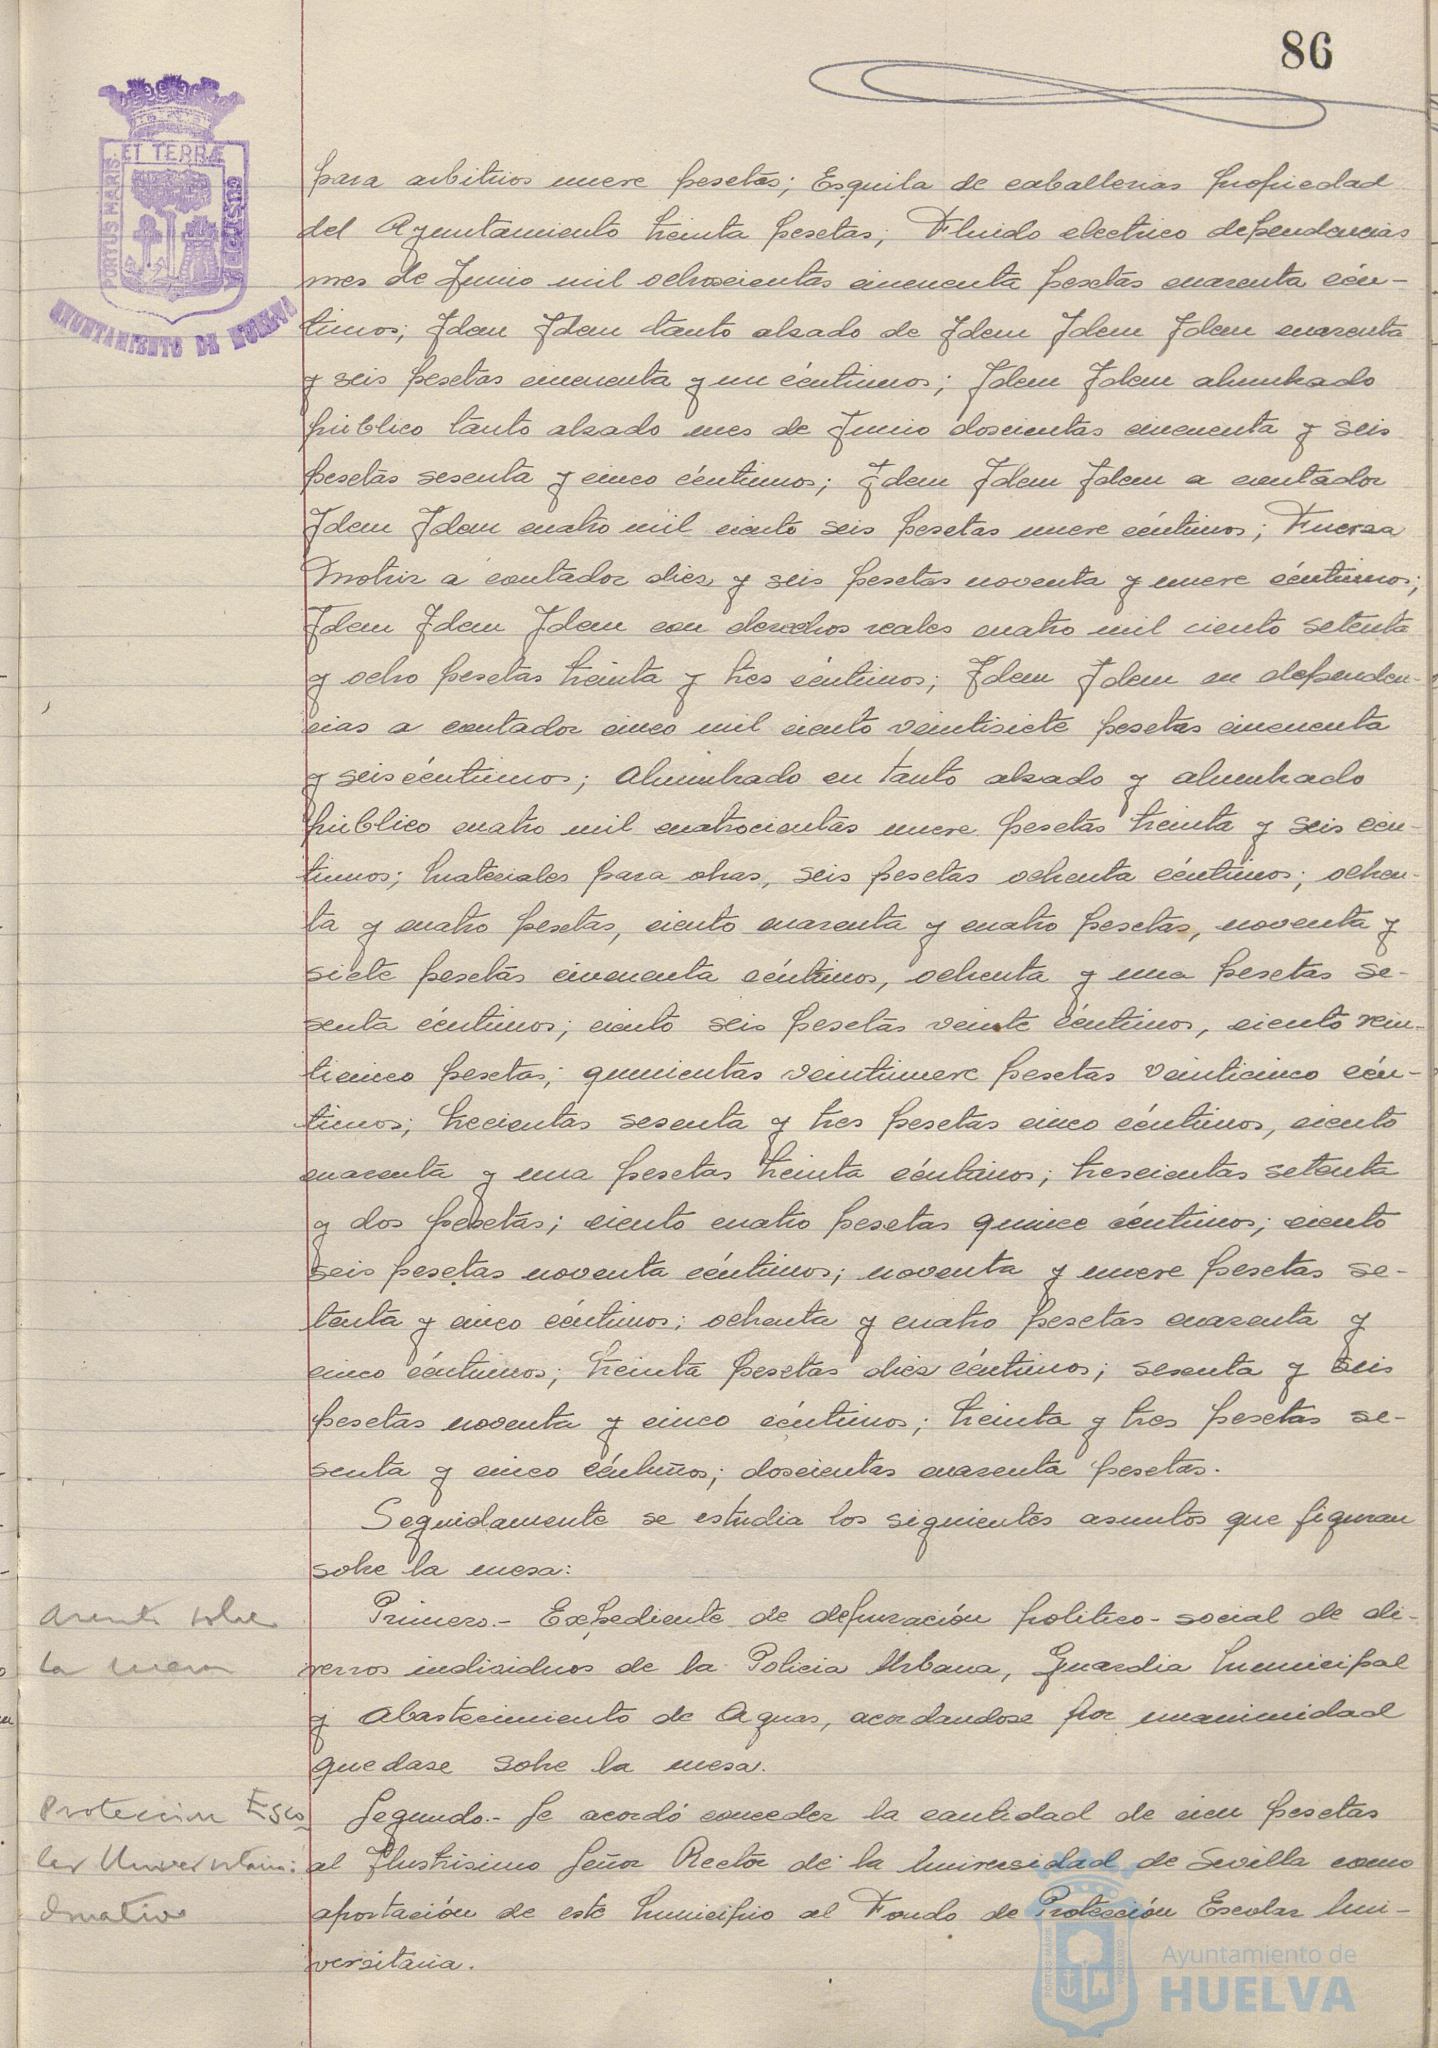 86
ET TERRÆ
PORTUS MARIS
CUSTODIA
AYUNTAMIENTO DE HUELVA
para arbitrios nueve pesetas; Esquila de caballerias propiedad
del Ayuntamiento treinta pesetas; Fluido electrico dependencias
mes de Junio mil ochocientas cincuenta pesetas cuarenta cén-
timos; Idem Idem tanto alzado de Idem Idem Idem cuarenta
y seis pesetas cincuenta y un céntimos; Idem Idem alumbrado
público tanto alzado mes de Junio doscientas cincuenta y seis
pesetas sesenta y cinco céntimos; Idem Idem Idem a contador
Idem Idem cuatro mil ciento seis pesetas nueve céntimos; Fuerza
Motriz a contador diez y seis pesetas noventa y nueve céntimos;
Idem Idem Idem con derechos reales cuatro mil ciento setenta
y ocho pesetas treinta y tres céntimos; Idem Idem en dependen-
cias a contador cinco mil ciento veintisiete pesetas cincuenta
y seis céntimos; Alumbrado en tanto alzado y alumbrado
público cuatro mil cuatrocientas nueve pesetas treinta y seis cén-
timos; Materiales para obras, seis pesetas ochenta céntimos; ochen-
ta y cuatro pesetas, ciento cuarenta y cuatro pesetas, noventa y
siete pesetas cincuenta céntimos, ochenta y una pesetas se-
senta céntimos; ciento seis pesetas veinte céntimos, ciento vein-
ticinco pesetas; quinientas veintinueve pesetas veinticinco cén-
timos; trecientas sesenta y tres pesetas cinco céntimos, ciento
cuarenta y una pesetas treinta céntimos; trescientas setenta
y dos pesetas; ciento cuatro pesetas quince céntimos; ciento
seis pesetas noventa céntimos; noventa y nueve pesetas se-
tenta y cinco céntimos; ochenta y cuatro pesetas cuarenta y
cinco céntimos; treinta pesetas diez céntimos; sesenta y seis
pesetas noventa y cinco céntimos; treinta y tres pesetas se-
senta y cinco céntimos; doscientas cuarenta pesetas.
Seguidamente se estudia los siguientes asuntos que figuran
sobre la mesa:
Asunto sobre
la mesa
Primero.- Expediente de depuración politico-social de di-
versos individuos de la Policia Urbana, Guardia Municipal
y Abastecimiento de Aguas, acordandose por unanimidad
quedase sobre la mesa.
Protección Esco-
lar Universitaria:
Donativo
Segundo.- Se acordó conceder la cantidad de cien pesetas
al Ilustrisimo Señor Rector de la Universidad de Sevilla como
aportación de este Municipio al Fondo de Protección Escolar Uni-
versitaria.
Ayuntamiento de
HUELVA